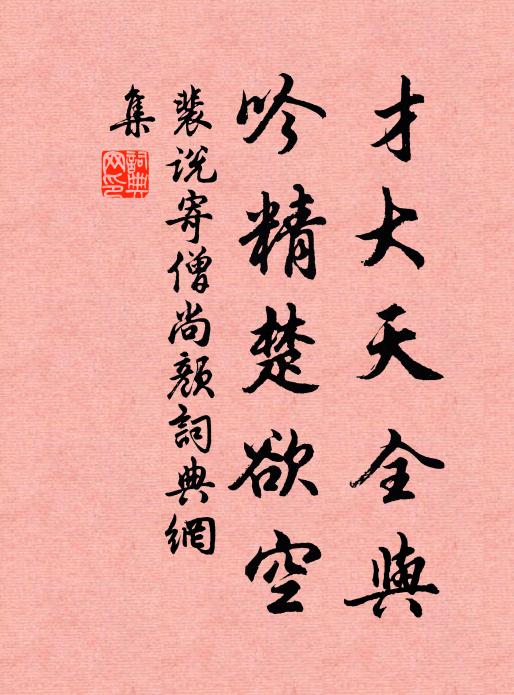 才大天全與
吟精楚欲空
裴説寄僧尚顔詞典網
集
詞典
网印